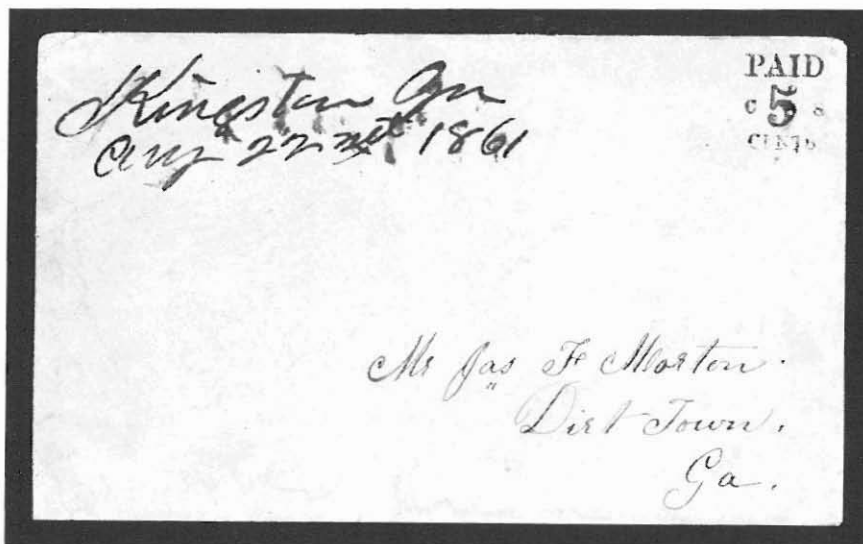 Kingston Ga
Aug 22nd 1861
PAID
C 5 S
CENTS
Mr Jas F Morton.
Dirt Town,
Ga.